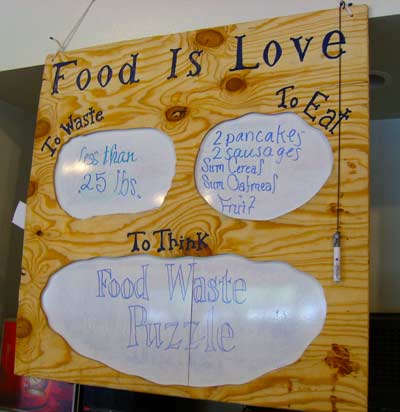 Food Is Love
To Waste
less than
25 lbs.
To Eat
2 pancakes
2 sausages
Sum Cereal
Sum Oatmeal
Fruit
To Think
Food Waste
Puzzle